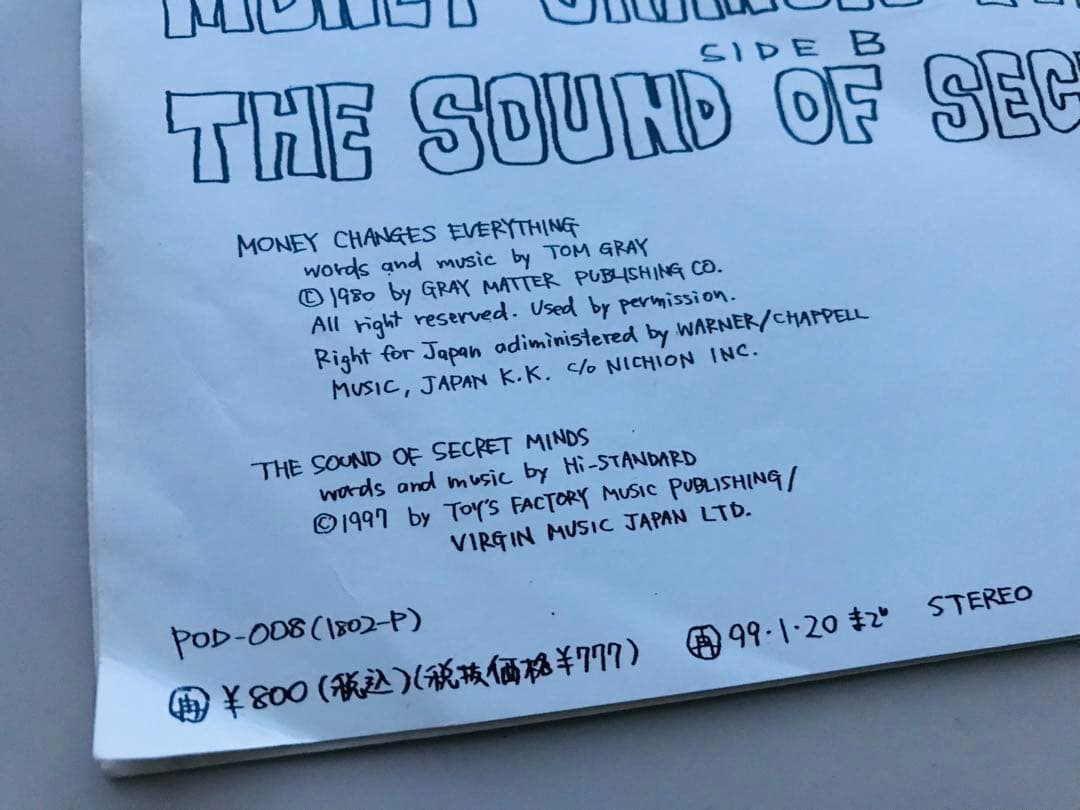 MONEY CHANGES
SIDE B
THE SOUND OF SEC
MONEY CHANGES EVERYTHING
words and music by TOM GRAY
©1980 by GRAY MATTER PUBLISHING CO.
All right reserved. Used by permission.
Right for Japan adiministered by WARNER/CHAPPELL
MUSIC, JAPAN K.K. c/o NICHION INC.
THE SOUND OF SECRET MINDS
words and music by Hi-STANDARD
©1997 by TOY'S FACTORY MUSIC PUBLISHING/
VIRGIN MUSIC JAPAN LTD.
POD-008(1802-P)
再 ¥800(税込)(税抜価格¥777) 再 99・1・20まで STEREO